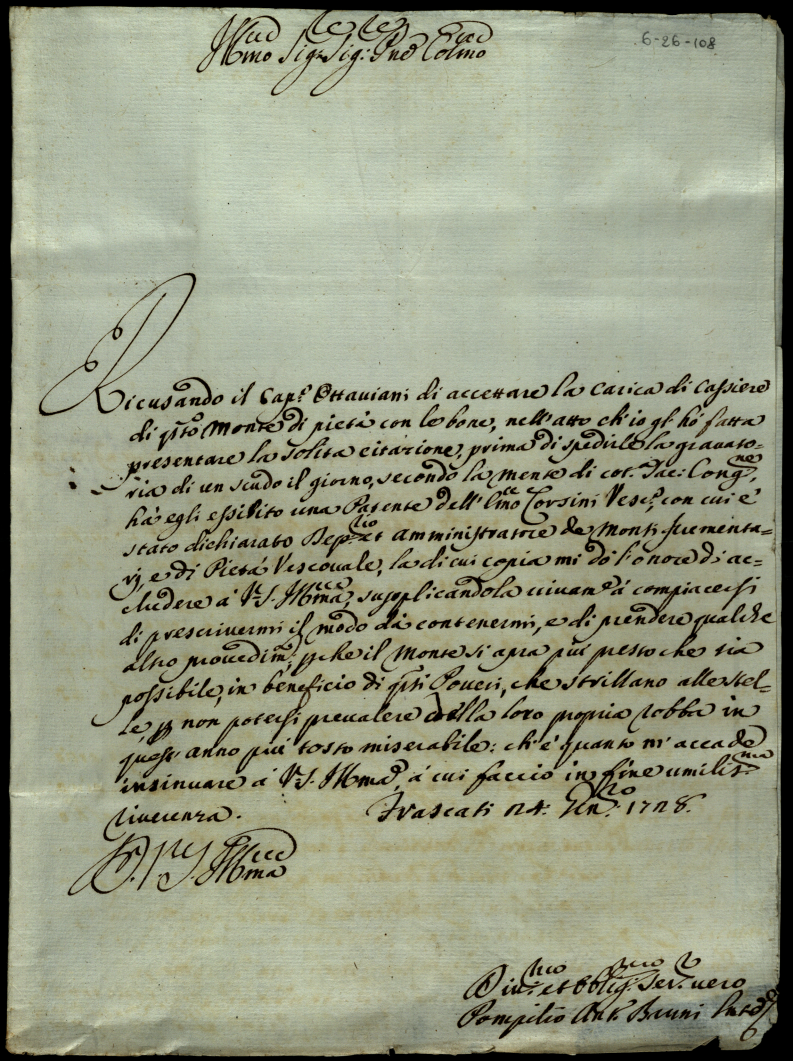 6-26-108
Illmo Sig.re Sig.re Pne Colmo
Ricusando il Cap.o Ottaviani di accettare la carica di Cassiere
di qsto Monte di pietà con le bone, nell'atto ch'io gl'hò fatta
presentare la solita citazione, prima di spedirle la gravato-
ria di un scudo il giorno, secondo la mente di cot. Sac: Cong.ne,
hà egli essibito una Patente dell' Illmo Corsini Vesc.o, con cui è
stato dichiarato Dep.rio et amministratore de Monti frumenta-
rj, e di Pietà Vescovale, la di cui copia mi dò l'onore di ac-
cludere à V.S. Illma, supplicandola vivam.e à compiacersi
di prescrivermi il modo dà contenermi, e di prendere qualche
altro provedim.o, pche il Monte si apra più presto che sia
possibile, in beneficio di qsti Poveri, che strillano alle stel-
le, p non potersi prevalere della loro propria robba in
quest'anno più tosto miserabile: ch'è quanto m'accade
insinuare à V.S. Illma, à cui faccio in fine umilis.ma
riverenza. Frascati 24. Gen.ro 1728.
D. V. S. Illma
Div.mo et Obblig.mo Ser.re vero
Pompilio Ant.o Bruni